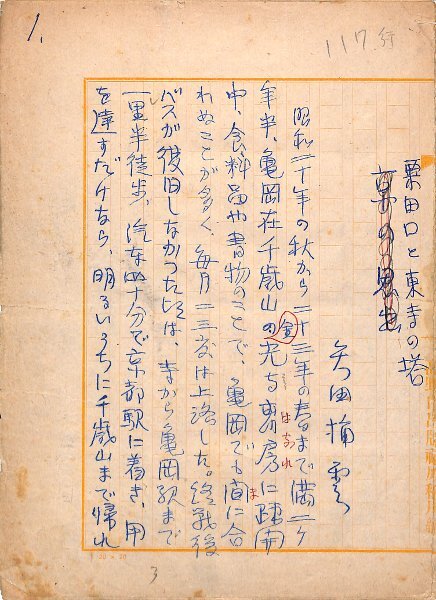 1.
117行
粟田口と東寺の塔
京の思出
矢田挿雲
昭和二十年の秋から二十三年の春まで満二ヶ
年半、亀岡在千歳山の金光寺裏房に疎開
はなれ
中、食料品や書物のことで、亀岡でも間に合
ま
わぬことが多く、毎月二三度は上洛した。終戦後
バスが復旧しなかつた頃は、寺から亀岡駅まで
一里半徒歩、汽車四十分で京都駅に着き、用
を達すだけなら、明るいうちに千歳山まで帰れ
3
20 × 20